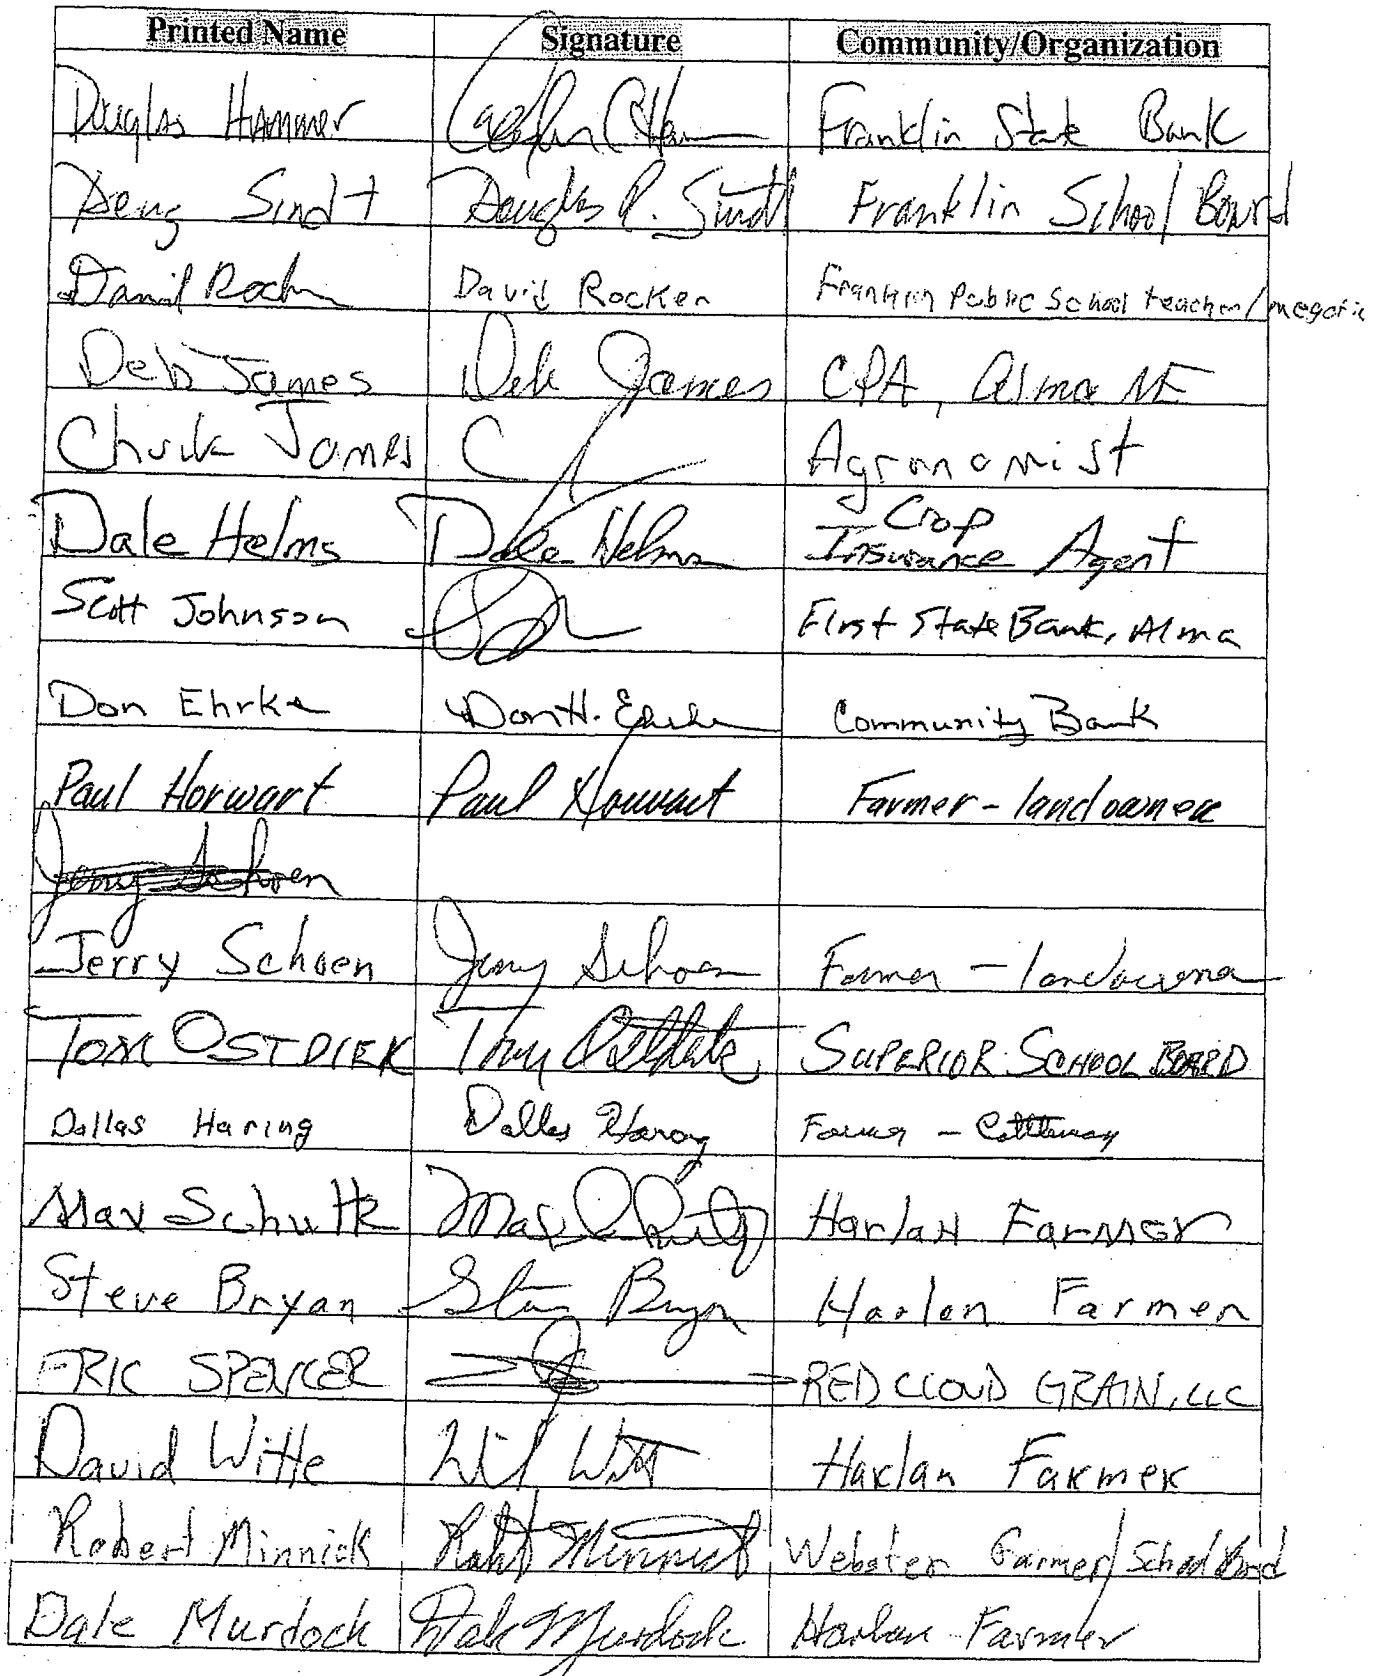 Printed Name Signature Community/Organization
Douglas Hammer Franklin State Bank
Doug Sindt Douglas R. Sindt Franklin School Board
David Rocker David Rocker Franklin Public School teacher/
Deb James Deb James CPA, Alma NE
Chuck James C Agronomist
Dale Helms Dale Helms Crop
Insurance Agent
Scott Johnson First State Bank, Alma
Don Ehrke Don H. Ehrke Community Bank
Paul Horwart Paul Horwart Farmer - landowner
Jerry Schoen
Jerry Schoen Jerry Schoen Farmer - landowner
Tom OSTDIEK SUPERIOR SCHOOL BOARD
Dallas Haring Dallas Haring Farmer - Cattleman
Max Schultz Harlan Farmer
Steve Bryan Steve Bryan Harlan Farmer
ERIC SPENCER RED CLOUD GRAIN, LLC
David Witte Witt Harlan Farmer
Robert Minnick Robt Minnick Webster Farmer/School Board
Dale Murdock Dale Murdock Harlan Farmer